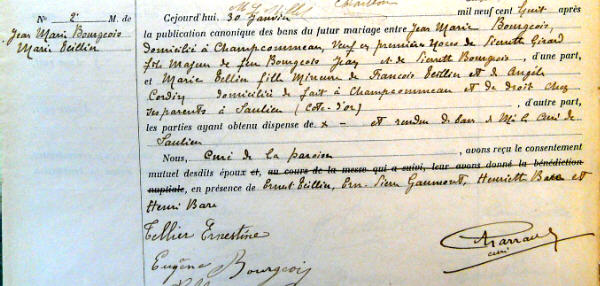 N° 2e M. de
Jean Marie Bourgeois
Marie Teillin
Cejourd'hui. 30 Janvier mil neuf cent huit après
la publication canonique des bans du futur mariage entre Jean Marie Bourgeois,
domicilié à Champcommeau, Veuf en premières Noces de Girard
fils Majeur de feu Bourgeois Jean et de Bourgeois, d'une part,
et Marie Tellin fille Mineure de Francois Teillin et de Angèle
Cordin domiciliée de fait à Champcommeau et de droit chez
ses parents à Saulieu (Côte-d'or), d'autre part,
les parties ayant obtenu dispense de x — et remdu de bans d Mr le curé de
Saulieu
Nous, Curé de la paroisse, avons reçu le consentement
mutuel desdits époux et, au cours de la messe qui a suivi, leur avons donné la bénédiction
nuptiale, en présence de Ernest Teillin, Pierre Gaumont, Henriette Bare et
Henri Bare
Tellier Ernestine
Eugène Bourgeois
curé